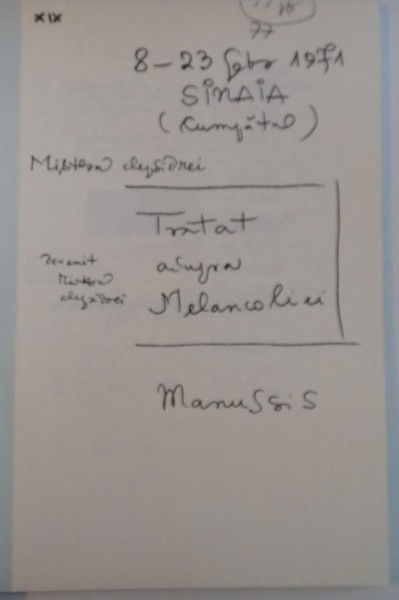 XIX
77
8 – 23 febr 1971
SINAIA
(Cumpătul)
Misterul clepsidrei
Tratat
asupra
Melancoliei
Devenit
Misterul
clepsidrei
Manussis